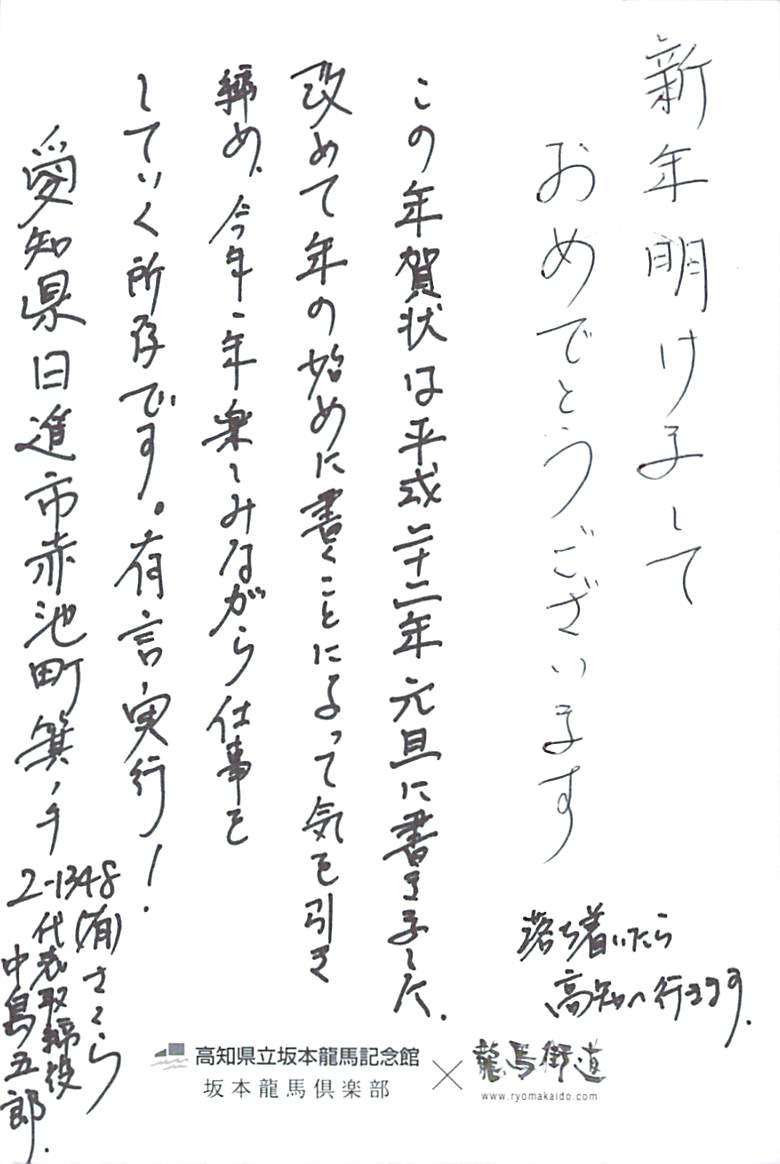 新年明けまして
おめでとうございます
この年賀状は平成二十二年元旦に書きました.
改めて年の始めに書くことによって気を引き
締め、今年一年楽しみながら仕事を
していく所存です。有言実行!
愛知県日進市赤池町箕ノ手
2-1348
(有)さくら
代表取締役
中島五郎.
落ち着いたら
高知へ行きます.
高知県立坂本龍馬記念館
坂本龍馬倶楽部
×
龍馬街道
www.ryomakaido.com